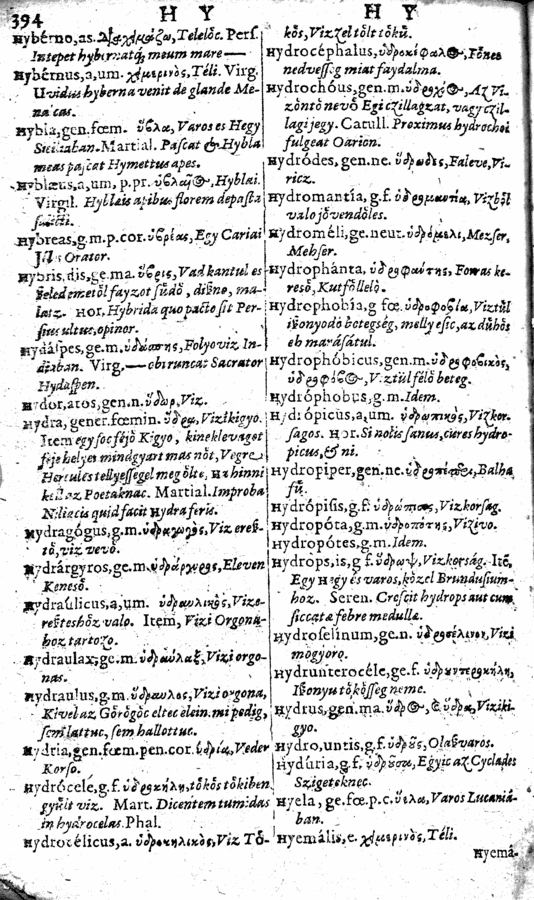 394
H Y
H Y
Hybérno,as. Διαχειμάζω, Telelőc. Pers.
Intepet hybernatq́; meum mare —
Hybérnus,a,um. χειμερινὸς, Téli. Virg.
Uvidus hyberna venit de glande Me-
nalcas.
Hybla, gen.fœm. ὕβλα, Varos es Hegy
Siciliaban. Martial. Pascat & Hybla
meas pascat Hymettus apes.
Hyblæus,a,um, p.pr. ὑβλαῖος, Hyblai.
Virgil. Hyblæis apibus florem depasta
salicti.
Hybreas,g.m.p.cor. ὑβρέας, Egy Cariai
Orator.
Hybris,dis,ge.ma. ὕβρις, Vad kantul es
ſeled emetől fayzot ſűdő, diſno, ma-
latz. Hor. Hybrida quo pacto ſit Per-
ſius ultus, opinor.
Hydáſpes, ge.m. ὑδάσπης, Folyo viz. In-
diaban. Virg. — cbi runcat Sacrator
Hydaſpen.
Hydor,atos,gen.n. ὕδωρ, Viz.
Hydra, gener.fœmin. ὕδρα, Vizi kigyo.
Item egy ſoc féjő Kigyo, kinek levagot
féje helyet mindgyart mas nőt,
Hercules tellyeſſegel meg őlte, Ha hinni
kell az Poetaknac. Martial. Improba
Niliacis quid facit Hydra feris.
Hydragógus,g.m. ὑδραγωγὸς, Viz ereſ-
tő, viz vevő.
Hydrárgyros, ge.m. ὑδράργυρος, Eleven
Keneső.
Hydraúlicus,a,um. ὑδραυλικὸς, Viz e-
reſteshőz valo. Item, Vizi Orgoná-
hoz tartozo.
Hydraulax, ge.m. ὑδραύλαξ, Vizi orgo-
nas.
Hydraulus,g.m. ὕδραυλος, Vizi orgona,
Kivel az Gőrőgőc eltec elein. mi pedig,
ſem lattuc, ſem hallottuc.
Hydria,gen.fœm.pen.cor. ὑδρία, Veder
Korſo.
Hydrócele,g.f. ὑδροκήλη, tőkős tőkiben
gyűlt viz. Mart. Dicentem tumidas
in hydrocelas Phal.
Hydrocélicus,a. ὑδροκηλικὸς, Viz Tő-
kős, Vizzel tőlt tőkű.
Hydrocéphalus, ὑδροκέφαλος, Főnec
nedveſſeg miat faydalma.
Hydrochóus,gen.m. ὑδροχόος, Az Vi-
zőntő nevő Egi czillagzat, vagy czil-
lagi jegy. Catull. Proximus hydrochoi
fulgeat Oarion.
Hydródes, gen.ne. ὑδρωδὲς, Faleve, Vi-
ricz.
Hydromantía, g.f. ὑδρομαντία, Vizből
valo jővendőles.
Hydroméli,ge.neut. ὑδρόμελι, Mezſer,
Mehſer.
Hydrophánta, ὑδροφαύτης, Forras ke-
reső, Kutfőllelő.
Hydrophobía, g fœ. ὑδροφοβία, Viztűl
iſzonyodo betegség, melly eſic, az dűhős
eb maraſatul.
Hydrophóbicus, gen.m. ὑδροφοβικὸς,
ὑδροφόβος, Viztűl félő beteg.
Hydróphobus, g.m. Idem.
Hydrópicus,a,um. ὑδρωπικὸς, Viz kor-
ſagos. Hor. Si nolis ſanus, cures hydro-
picus, & ni.
Hydropiper, gen.ne. ὑδροπέπερι, Balha
fű.
Hydrópiſis, g.f. ὑδρώπισις, Viz korſag.
Hydropóta,g.m. ὑδροπότης, Vizivo.
Hydropótes, g.m. Idem.
Hydrops,is, g f. ὕδρωψ, Viz korság. Itē,
Egy Hegy és varos, kőzel Brunduſium-
hoz. Seren. Creſcit hydrops aut cum
ſiccatæ febre medullæ.
Hydroſelinum, ge.n. ὑδροσέλινον, Vizi
mogyoro.
Hydrunterocéle,ge.f.
Iſzonyu tőkőſſeg neme.
Hydrus, gen.ma. ὕδρος, & ὕδρα, Vizi ki-
gyo.
Hydro, untis,g.f. ὑδροῦς, Olaſz varos.
Hydúria,g.f. ὑδροῦσα, Egyic az Cyclades
Szigeteknec.
Hyela, ge.fœ.p.c. ὕελα, Varos Lucaniá-
ban.
Hyemális,e. χειμερινὸς, Téli.
Hyemâ-